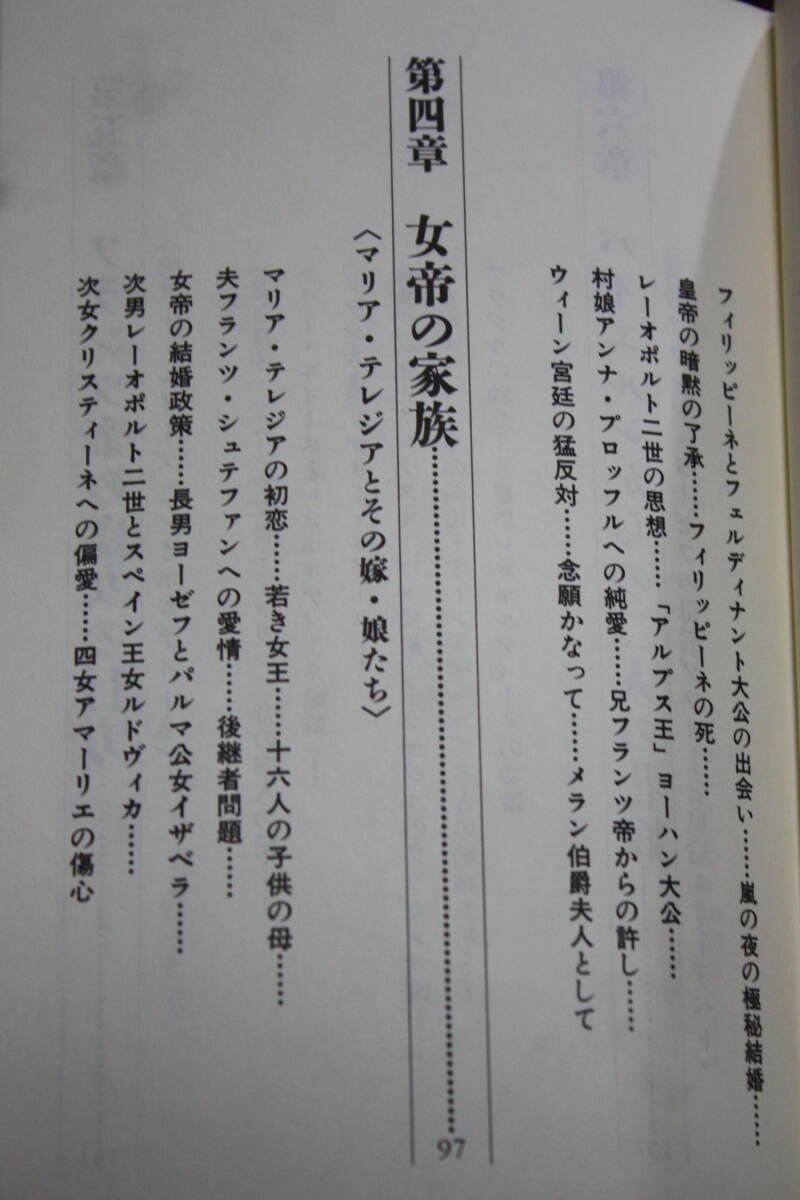 フィリッピーネとフェルディナント大公の出会い……嵐の夜の極秘結婚……
皇帝の暗黙の了承……フィリッピーネの死……
レーオポルト二世の思想……「アルプス王」ヨーハン大公……
村娘アンナ・プロッフルへの純愛……兄フランツ帝からの許し……
ウィーン宮廷の猛反対……念願かなって……メラン伯爵夫人として
第四章 女帝の家族……………………………………97
〈マリア・テレジアとその嫁・娘たち〉
マリア・テレジアの初恋……若き女王……十六人の子供の母……
夫フランツ・シュテファンへの愛情……後継者問題……
女帝の結婚政策……長男ヨーゼフとパルマ公女イザベラ……
次男レーオポルト二世とスペイン王女ルドヴィカ……
次女クリスティーネへの偏愛……四女アマーリエの傷心